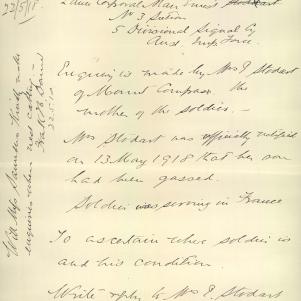 22/5/18
Lance Corporal Alan
No 3 Section
5 Divisional Signal Coy
Aust. Imp. Force
Enquiry is made by Mrs J Stodart
of Mount Compass the
mother of the soldier.-
Mrs Stodart was officially notified
on 13 May 1918 that her son
had been gassed.
Soldier was serving in France
To ascertain where soldier is
and his condition.
Write reply to Mrs J. Stodart
Will Miss kindly make
enquiries when next
22.5.18